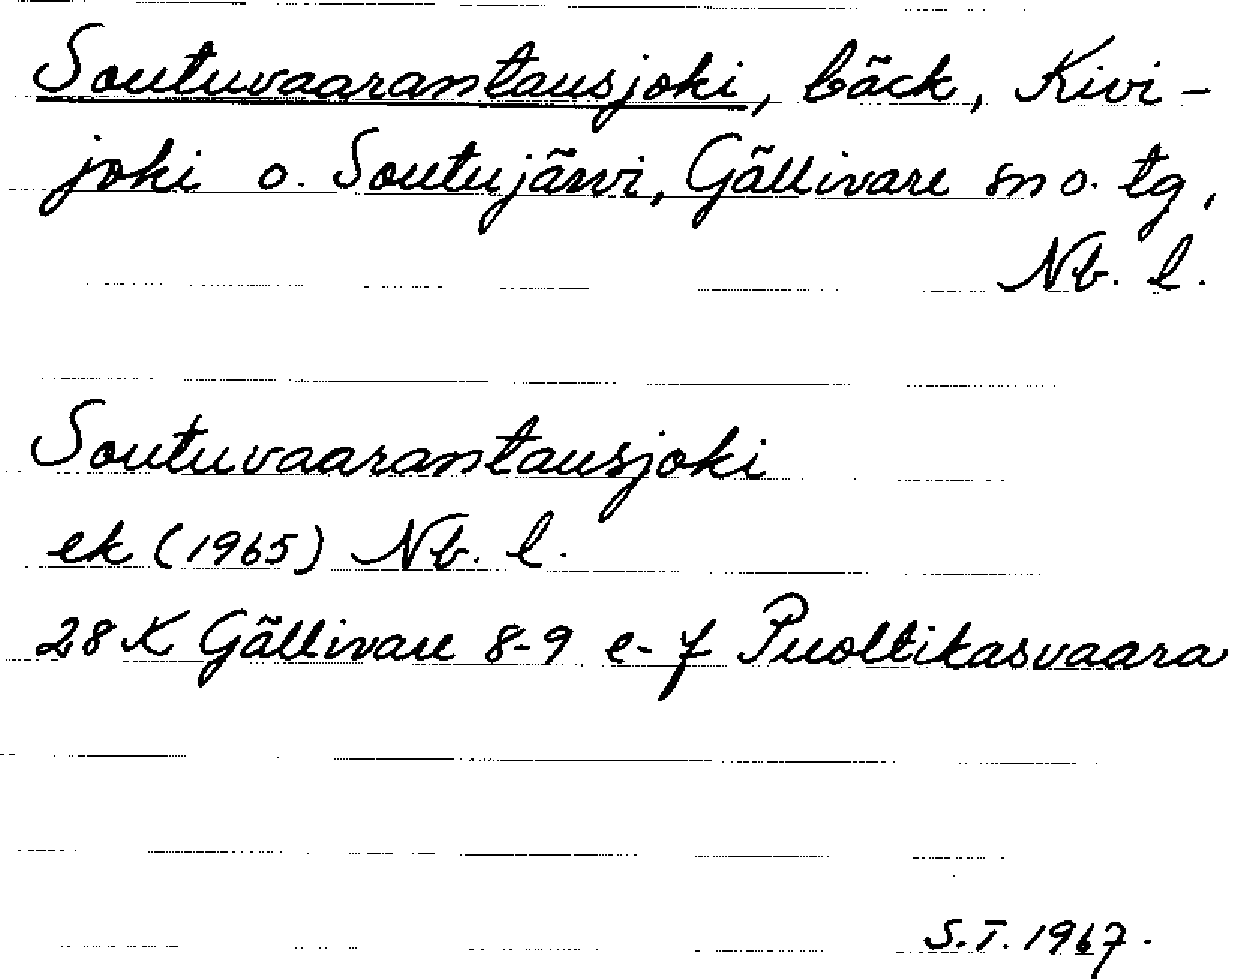 Soutuvaarantausjoki, bäck, Kivi-
joki o. Soutujärvi, Gällivare sn o. tg,
Nb. l.
Soutuvaarantausjoki
ek (1965) Nb. l.
28 K Gällivare 8-9 e-f Puoltikasvaara
S.T. 1967.